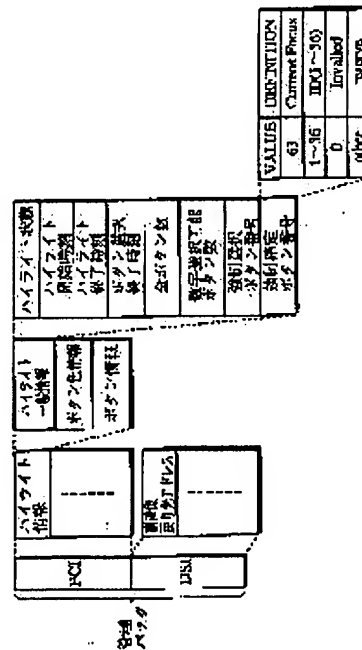 管理
パック
PCI
DSI
ハイライト
情報
戻り先アドレス
ハイライト
一般情報
ボタン色情報
ボタン情報
ハイライト状態
ハイライト
開始時刻
ハイライト
終了時刻
ボタン選択
終了時刻
全ボタン数
数字選択可能
ボタン数
強制選択
ボタン番号
強制確定
ボタン番号
VALUE DEFINITION
63 Current Focus
1~36 ID(1~36)
0 Invalled
other